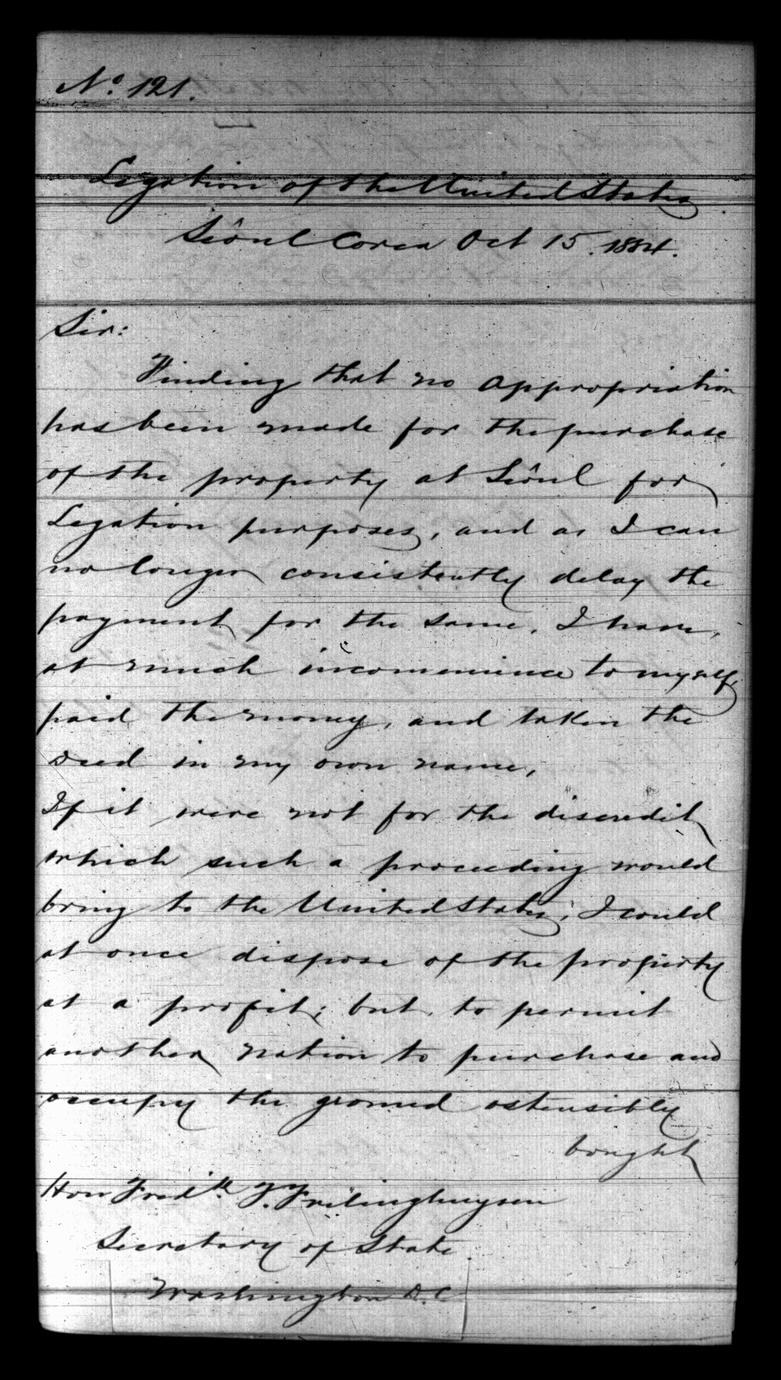 No. 121.
Legation of the United States
Sôul Corea Oct 15. 1884.
Sir:
Finding that no appropriation
has been made for the purchase
of the property at Sôul for
Legation purposes, and as I can
no longer consistently delay the
payment for the same, I have,
at much inconvenience to myself,
paid the money, and taken the
deed in my own name,
If it were not for the discredit
which such a proceeding would
bring to the United States; I could
at once dispose of the property
at a profit; but, to permit
another nation to purchase and
occupy the ground ostensibly
bought
Hon Fredk. T. Frelinghuysen
Secretary of State.
Washington D.C.